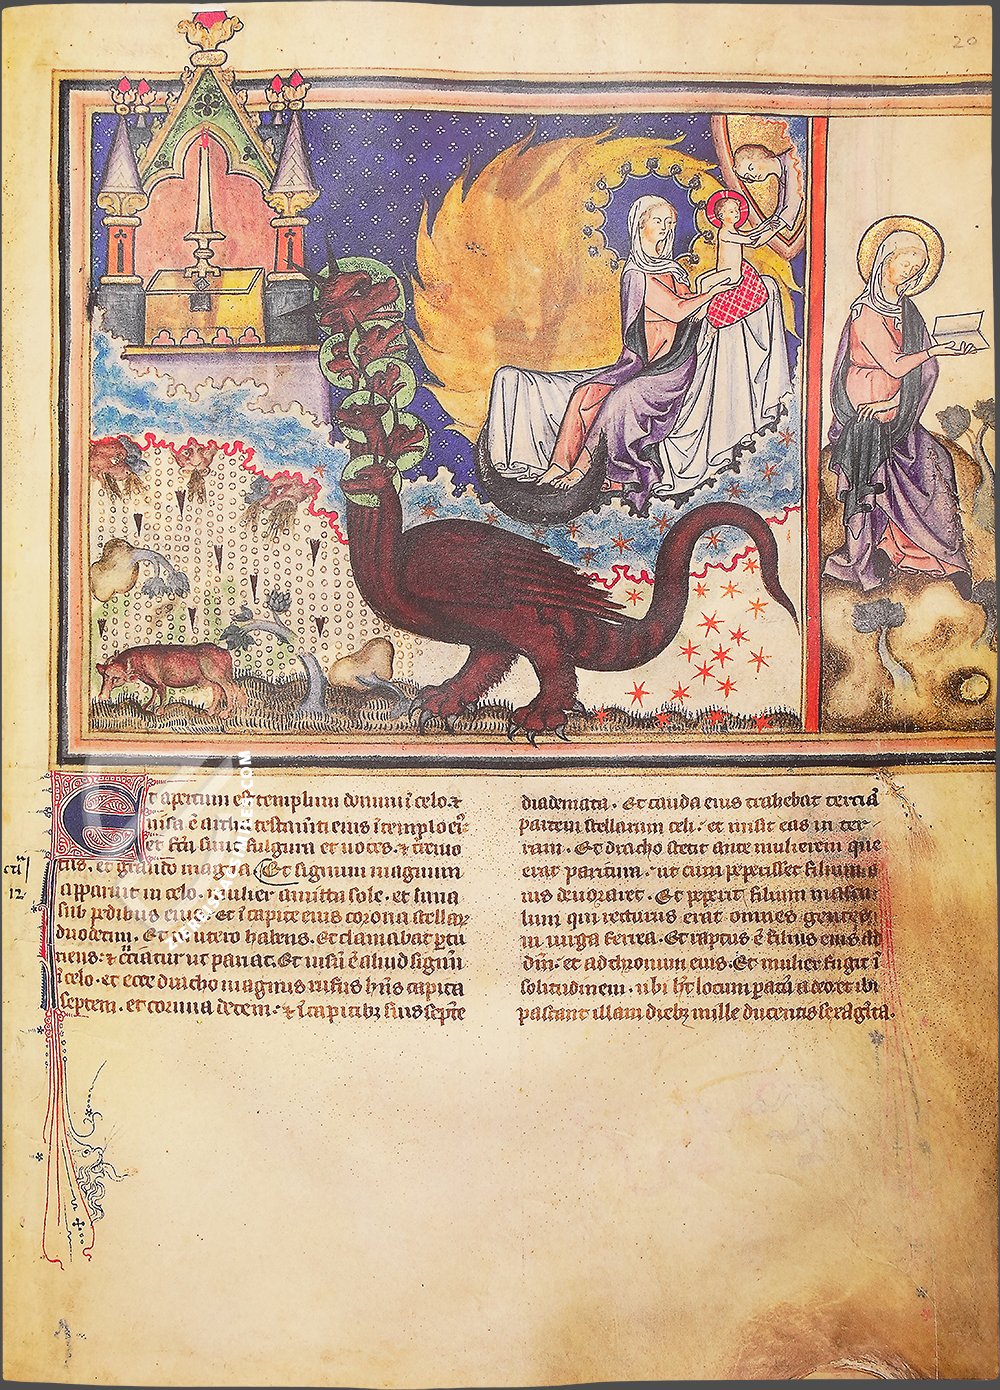 20
Et apertum est templum domini i celo. ⁊
uisa ē archa testam̄ti eius i templo ei⁹
et fc̄a sunt fulgura et uoces. ⁊ t̄remo
tus. et grando magna. Et signum magnum
apparuit in celo. mulier amicta sole. et luna
sub pedibus eius. Et i capite eius corona stellar
duodecim. Et in utero habens. Et clamabat partu
riens. ⁊ cruciatur ut pariat. Et uisū ē aliud signū
i celo. et ecce dracho magnus rufus hn̄s capita
septem. et cornua decem. ⁊ i capitibȝ suis septē
diademata. Et cauda eius trahebat terciā
partem stellarum celi. et misit eas in ter
ram. Et dracho stetit ante mulierem que
erat paritura. ut cum peperisset filium
ius deuoraret. Et peperit filium mascu
lum qui recturus erat omnes gentes
in uirga ferrea. Et raptus ē filius eius ad
dm̄. et ad thronum eius. Et mulier fugit i
solitudinem. ubi ht̄ locum paratū a deo. et ibi
pascant illam diebȝ mille ducentis sexagīta.
12